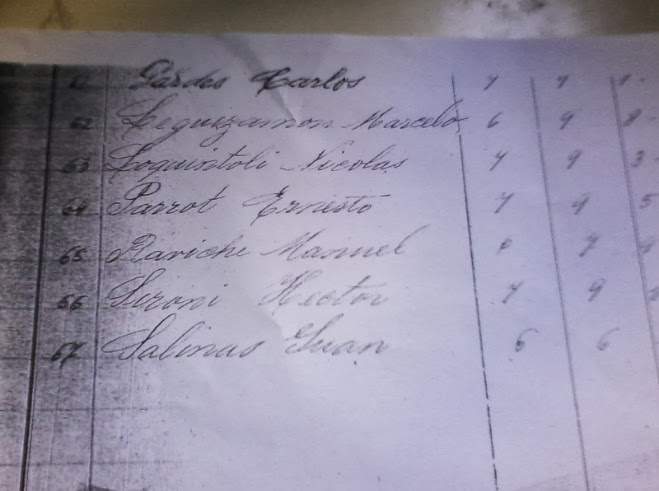 Gardes Carlos 7 9
62 Leguizamon Marcelo 6 9 8
63 Loquintoli Nicolas 7 9 3
64 Parrot Ernesto 7 9 5
65 Raviche Manuel 7
66 Seroni Hector 7 9
67 Salinas Juan 6 6